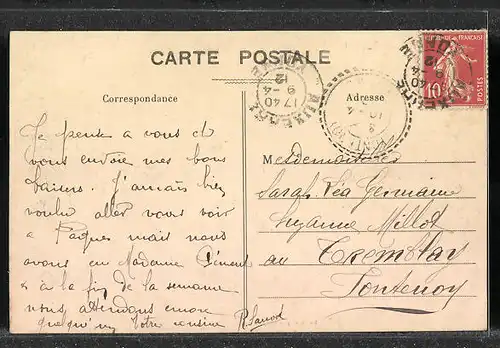 CARTE POSTALE
Correspondance
Adresse
Je pense a vous et
vous envoie mes bons
baisers. J'aurais bien
voulu aller vous voir
a Paques mais nous
avons eu Madame
a la fin de la semaine
nous attendons mon
Votre cousine
Mesdemoiselles
Sarah Léa Germaine
Suzanne Millot
au Tremblay
Fontenoy
AUXERRE
17 40
9 - 4
12
YONNE
REPUBLIQUE FRANÇAISE
10
POSTES